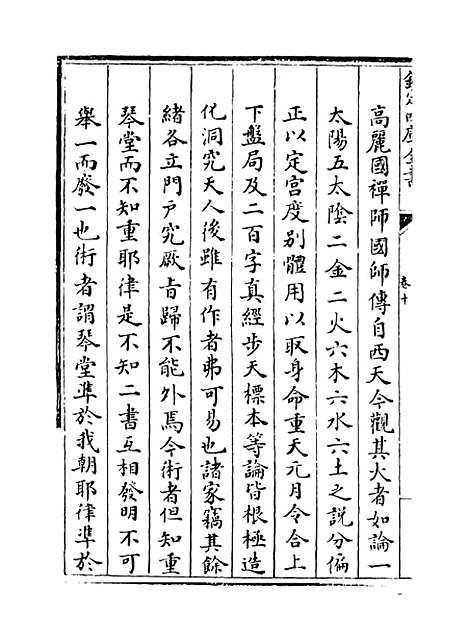 欽定四庫全書
卷十
高麗國禪師國師傳自西天今觀其大者如論一
太陽五太陰二金二火六木六水六土之說分偏
正以定宫度别體用以取身命重天元月令合上
下盤局及二百字真經步天標本等論皆根極造
化洞究天人後雖有作者弗可易也諸家竊其餘
緒各立門户究厥旨歸不能外焉今術者但知重
琴堂而不知重耶律是不知二書互相發明不可
舉一而廢一也術者謂琴堂準於我朝耶律準於